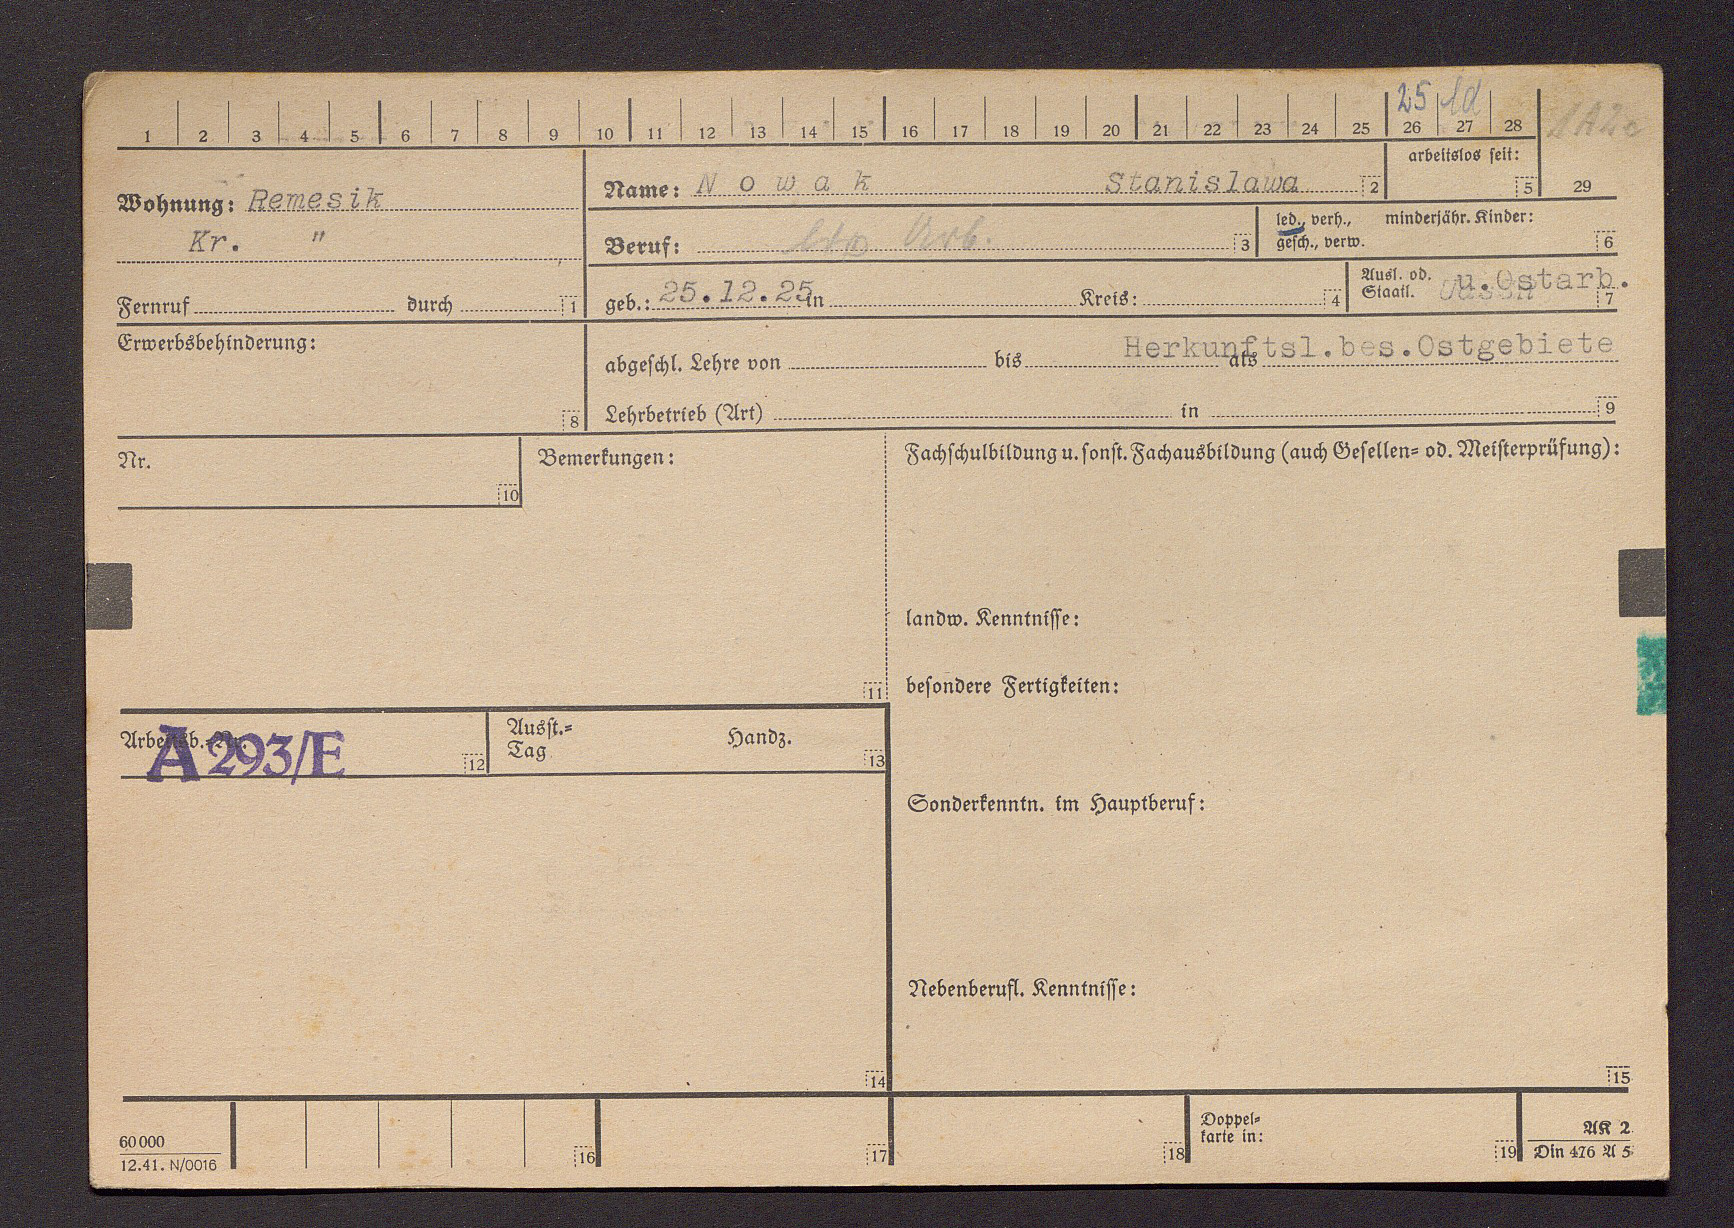 25 1d
1 2 3 4 5 6 7 8 9 10 11 12 13 14 15 16 17 18 19 20 21 22 23 24 25 26 27 28 1A2c
arbeitslos seit:
5 29
Wohnung: Remesik
Kr. "
Name: Nowak Stanislawa 2
Beruf: Arb. 3
led., verh., minderjähr. Kinder:
gesch., verw. 6
Fernruf durch 1
geb.: 25.12.25 in Kreis: 4
Ausl. od. u.Ostarb.
Staatl. 7
Erwerbsbehinderung:
8
Herkunftsl.bes.Ostgebiete
abgeschl. Lehre von bis als
Lehrbetrieb (Art) in 9
Nr.
10
Bemerkungen:
11
Fachschulbildung u. sonst. Fachausbildung (auch Gesellen- od. Meisterprüfung):
landw. Kenntnisse:
besondere Fertigkeiten:
Arbeitsb.-Nr. 12
A 293/E
Ausst.- Handz.
Tag 13
Sonderkenntn. im Hauptberuf:
Nebenberufl. Kenntnisse:
14
15
60 000
12.41. N/0016
16
17
18
Doppel-
karte in:
19
AK 2
Din 476 A 5